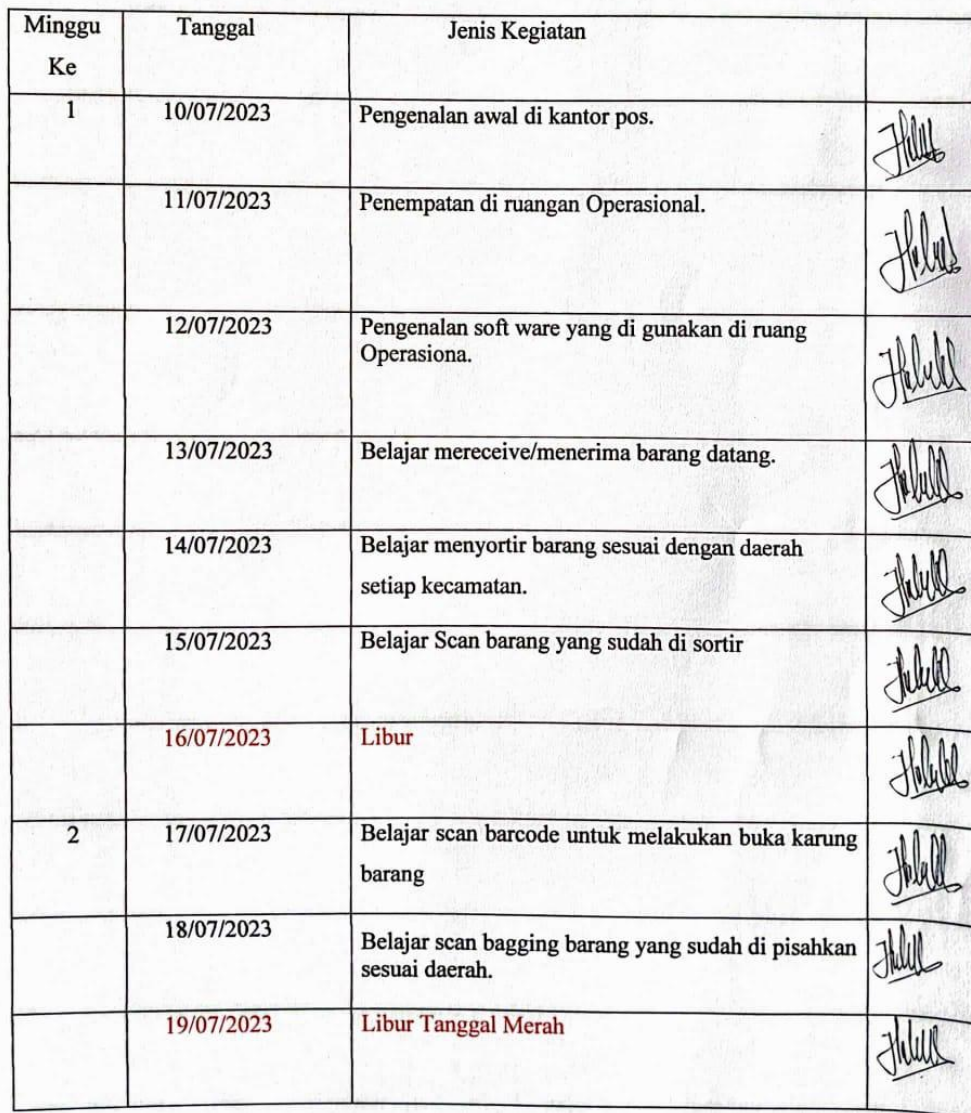 Minggu Ke
Tanggal
Jenis Kegiatan
1
10/07/2023
Pengenalan awal di kantor pos.
11/07/2023
Penempatan di ruangan Operasional.
12/07/2023
Pengenalan soft ware yang di gunakan di ruang
Operasiona.
13/07/2023
Belajar mereceive/menerima barang datang.
14/07/2023
Belajar menyortir barang sesuai dengan daerah
setiap kecamatan.
15/07/2023
Belajar Scan barang yang sudah di sortir
16/07/2023
Libur
2
17/07/2023
Belajar scan barcode untuk melakukan buka karung
barang
18/07/2023
Belajar scan bagging barang yang sudah di pisahkan
sesuai daerah.
19/07/2023
Libur Tanggal Merah